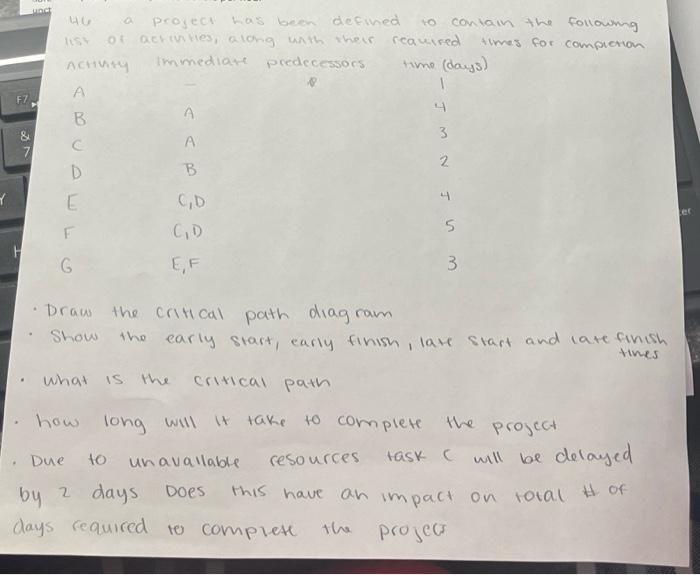 unct
46 a project has been defined to contain the following
list of activities, along with their required times for completion
Activity immediate predecessors time (days)
A — 1
B A 4
C A 3
D B 2
E C,D 4
F C,D 5
G E,F 3
· Draw the critical path diagram
· Show the early start, early finish, late start and late finish
times
· what is the critical path
· how long will it take to complete the project
· Due to unavailable resources task C will be delayed
by 2 days Does this have an impact on total # of
days required to complete the project
F7
&
7
Y
H
er